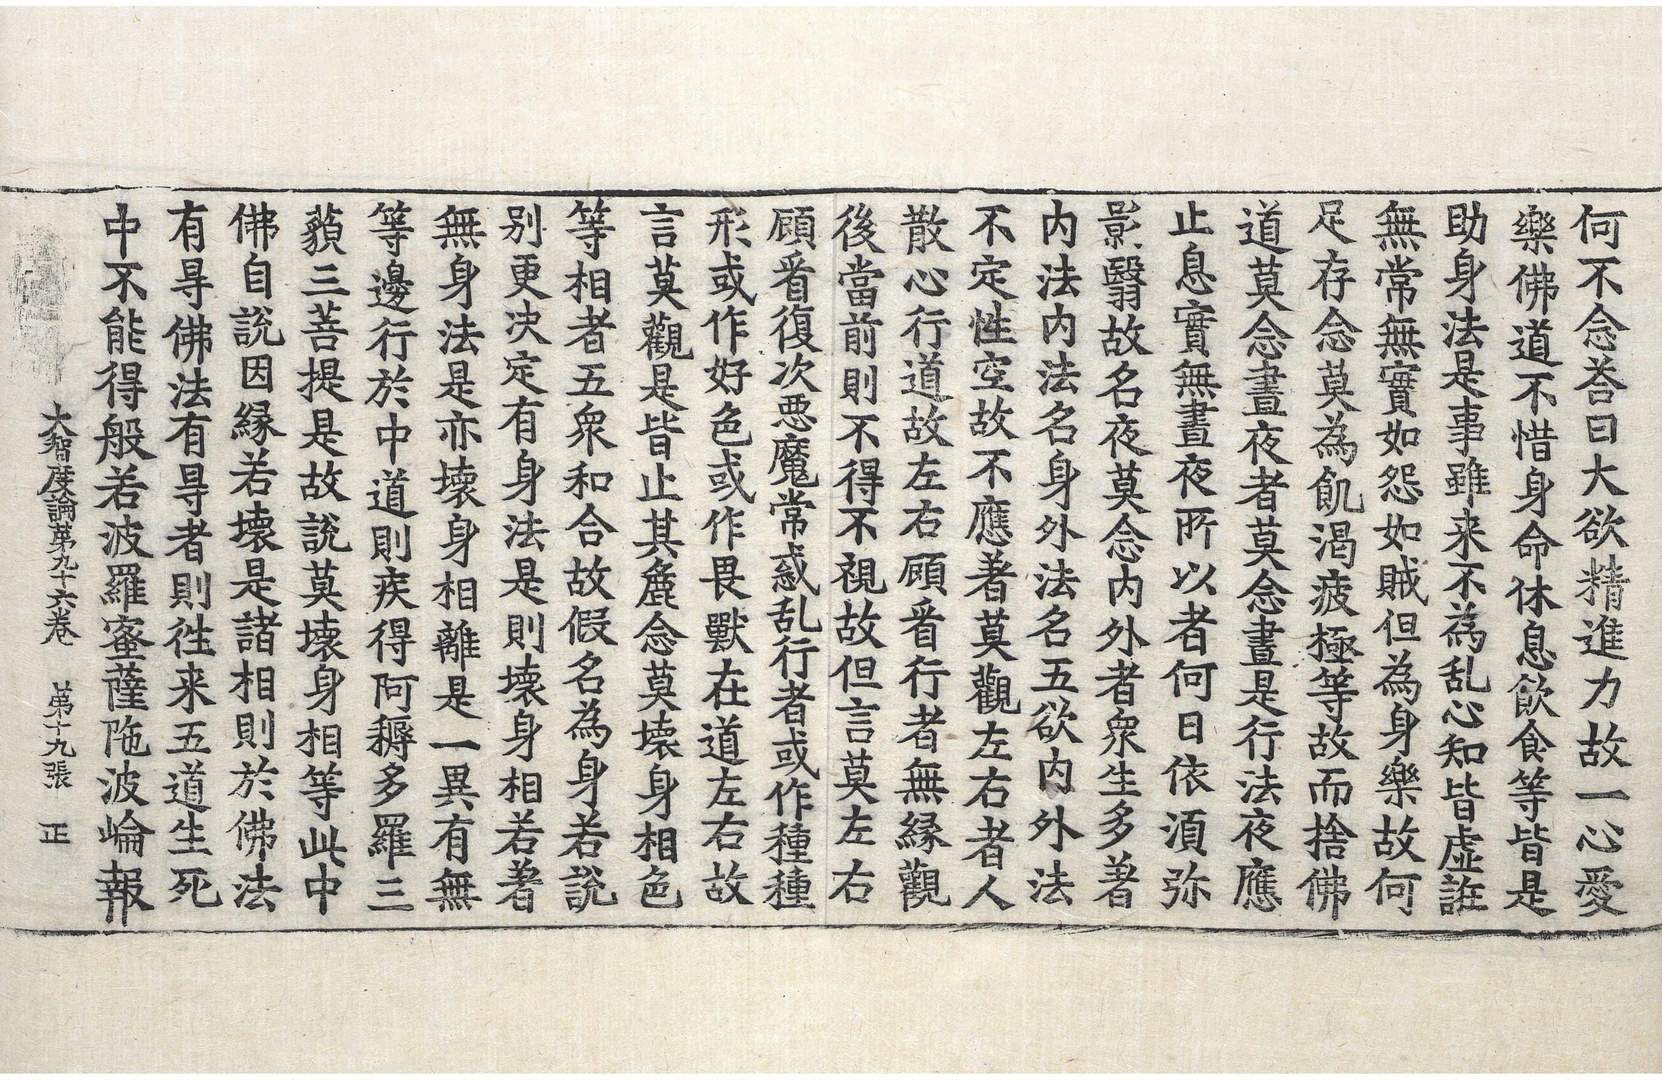 何不念荅曰大欲精進力故一心愛
樂佛道不惜身命休息飮食等皆是
助身法是事雖来不為乱心知皆虛誑
無常無實如怨如賊但為身樂故何
足存念莫為飢渴疲極等故而捨佛
道莫念晝夜者莫念晝是行法夜應
止息實無晝夜所以者何日依湏弥
影翳故名夜莫念内外者衆生多著
内法内法名身外法名五欲内外法
不定性空故不應著莫觀左右者人
散心行道故左右顧㸔行者無縁觀
後當前則不得不視故但言莫左右
顧㸔復次惡魔常惑乱行者或作種種
形或作好色或作畏獸在道左右故
言莫觀是皆止其麁念莫壞身相色
等相者五衆和合故假名為身若說
别更决定有身法是則壞身相若著
無身法是亦壞身相離是一異有無
等邊行於中道則疾得阿耨多羅三
藐三菩提是故說莫壞身相等此中
佛自說因緣若壞是諸相則於佛法
有㝵佛法有㝵者則徃来五道生死
中不能得般若波羅蜜薩陁波崘報
大智度論第九十六卷　第十九張　正